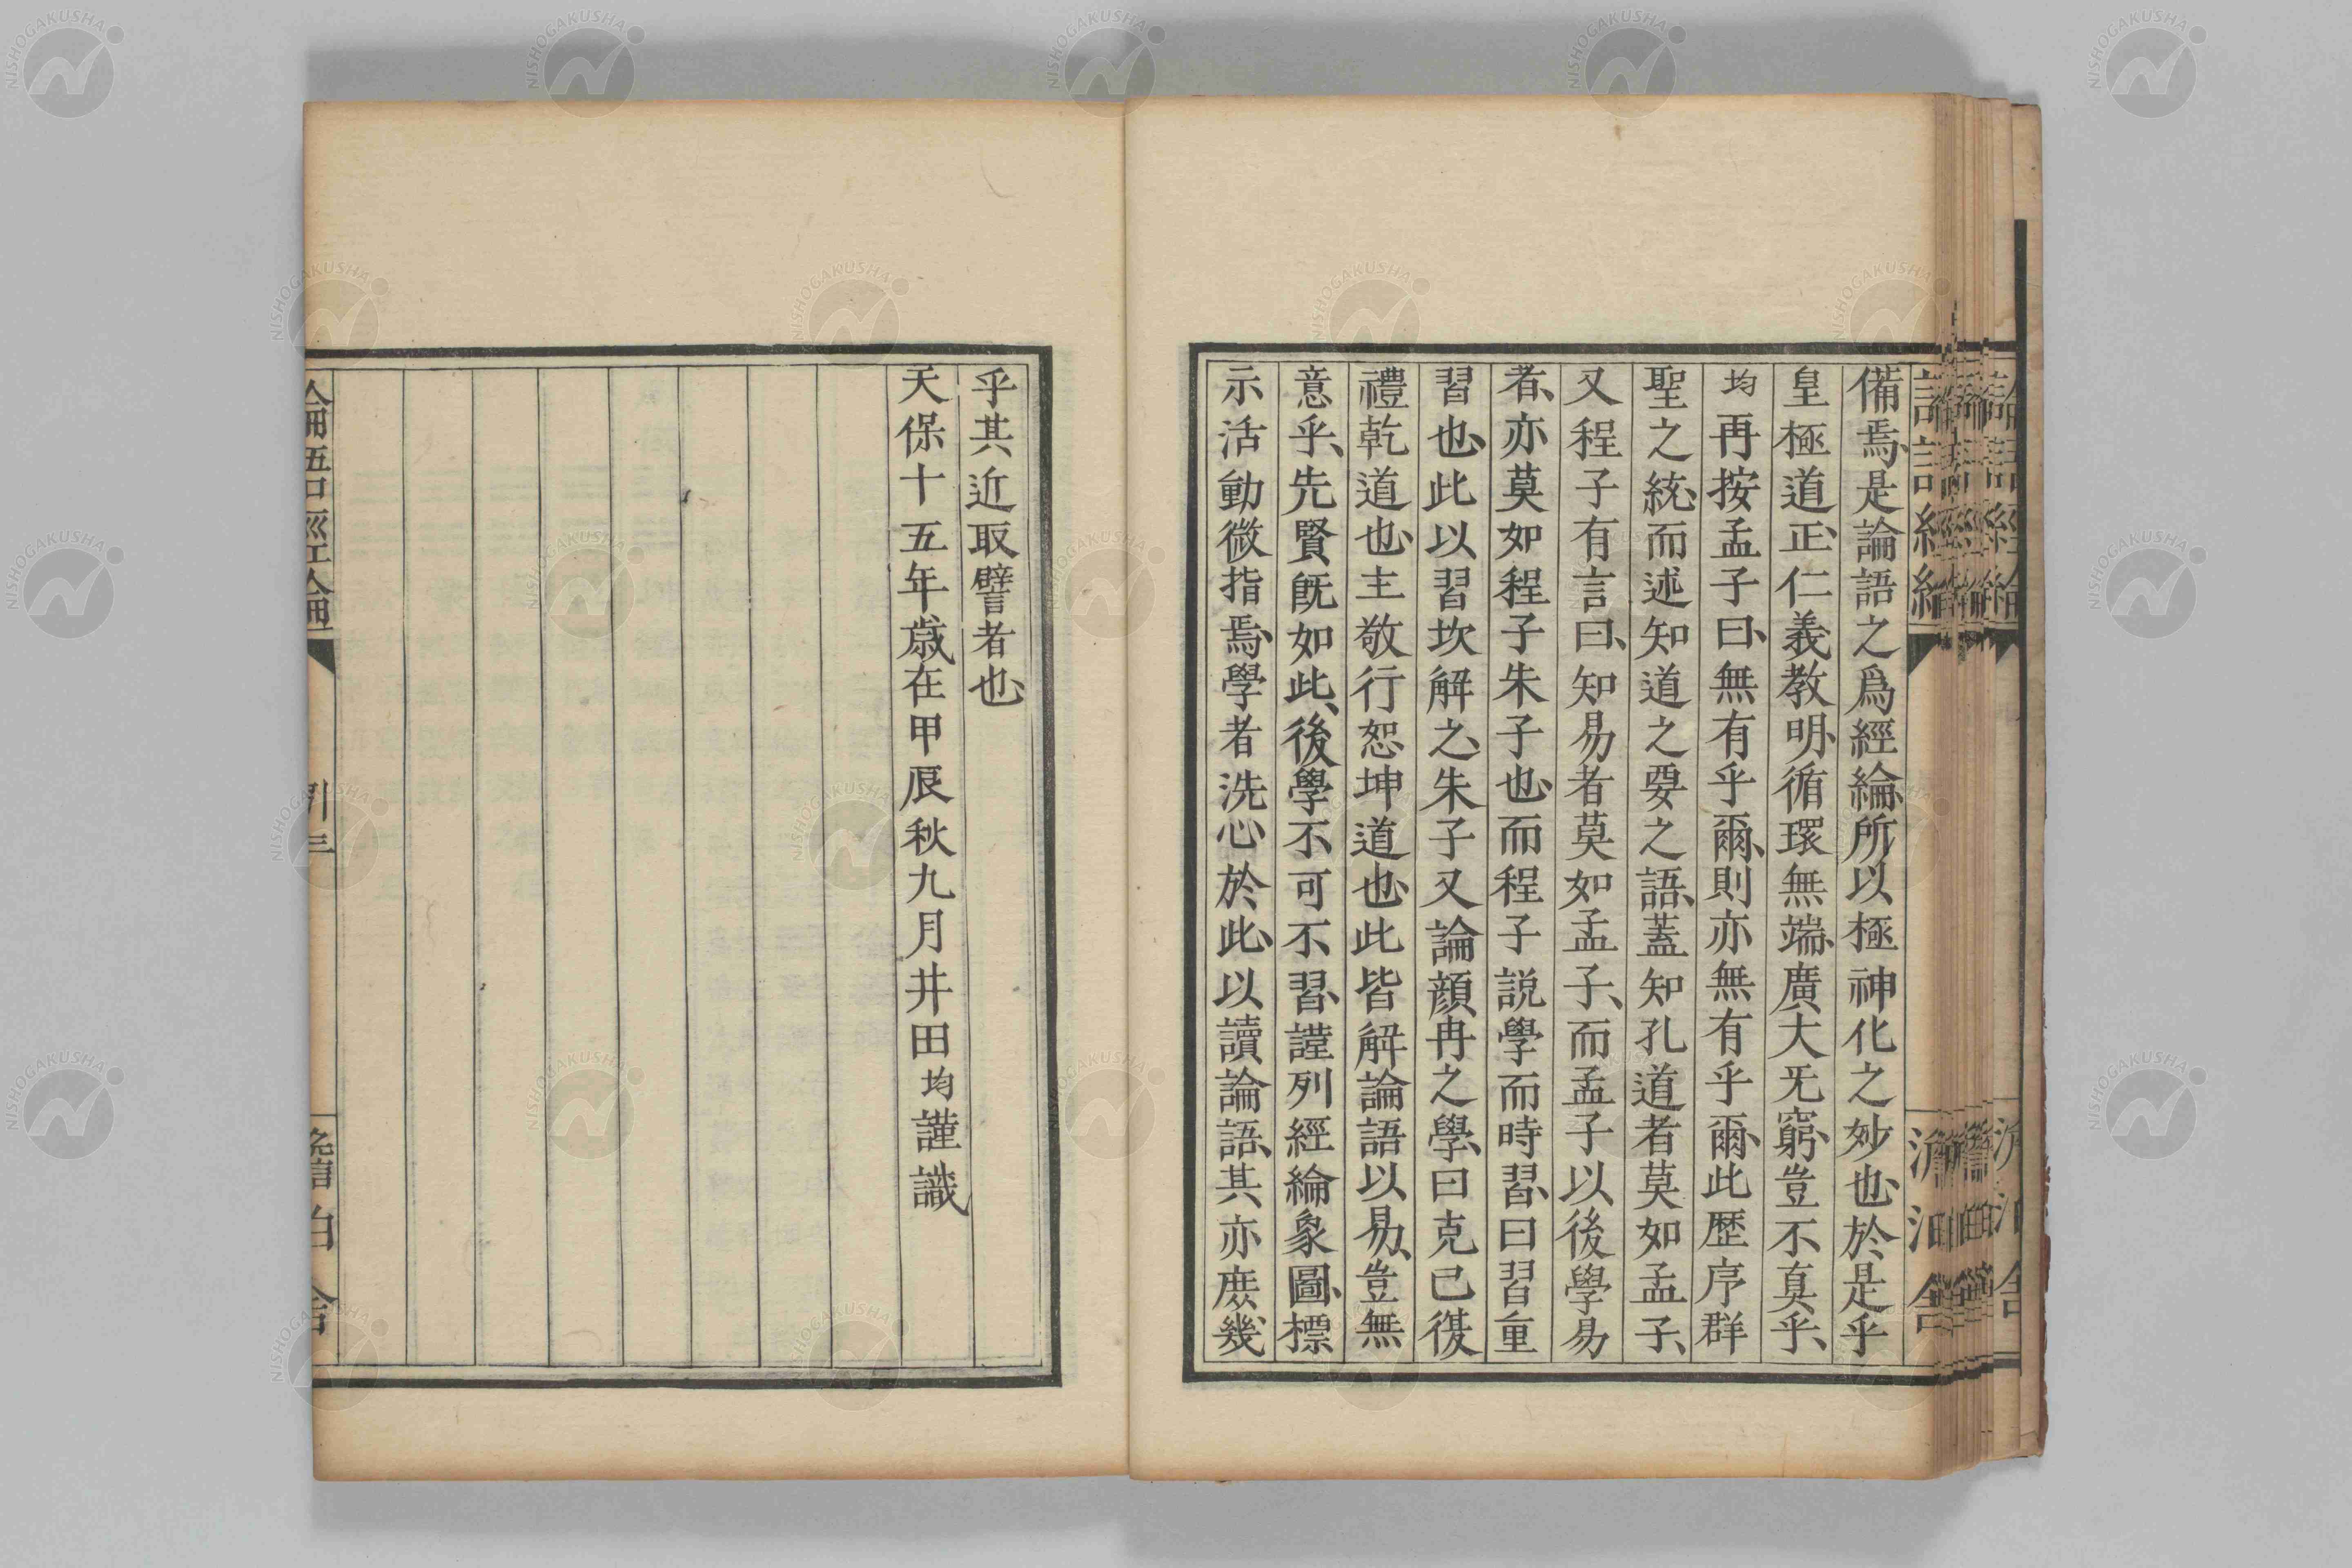 備焉、是論語之爲經綸、所以極神化之妙也、於是乎
皇極道正、仁義教明、循環無端、廣大旡窮、豈不真乎、
均再按孟子曰、無有乎爾、則亦無有乎爾、此歴序群
聖之統、而述知道之要之語、蓋知孔道者莫如孟子、
又程子有言曰、知易者莫如孟子、而孟子以後學易
者、亦莫如程子朱子也、而程子説學而時習、曰習重
習也、此以習坎解之、朱子又論顔冉之學、曰克己復
禮乾道也、主敬行恕坤道也、此皆解論語以易、豈無
意乎、先賢既如此、後學不可不習、謹列經綸象圖、標
示活動微指焉、學者洗心於此、以讀論語、其亦庶幾
乎其近取譬者也、
天保十五年歳在甲辰秋九月井田均謹識
論語經綸
列三
澹泊舍
NISHOGAKUSHA